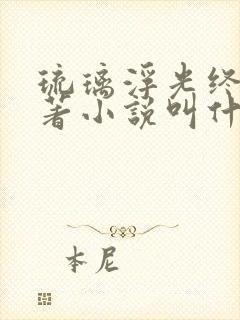 琉璃浮光终
著小説叫什
本尼